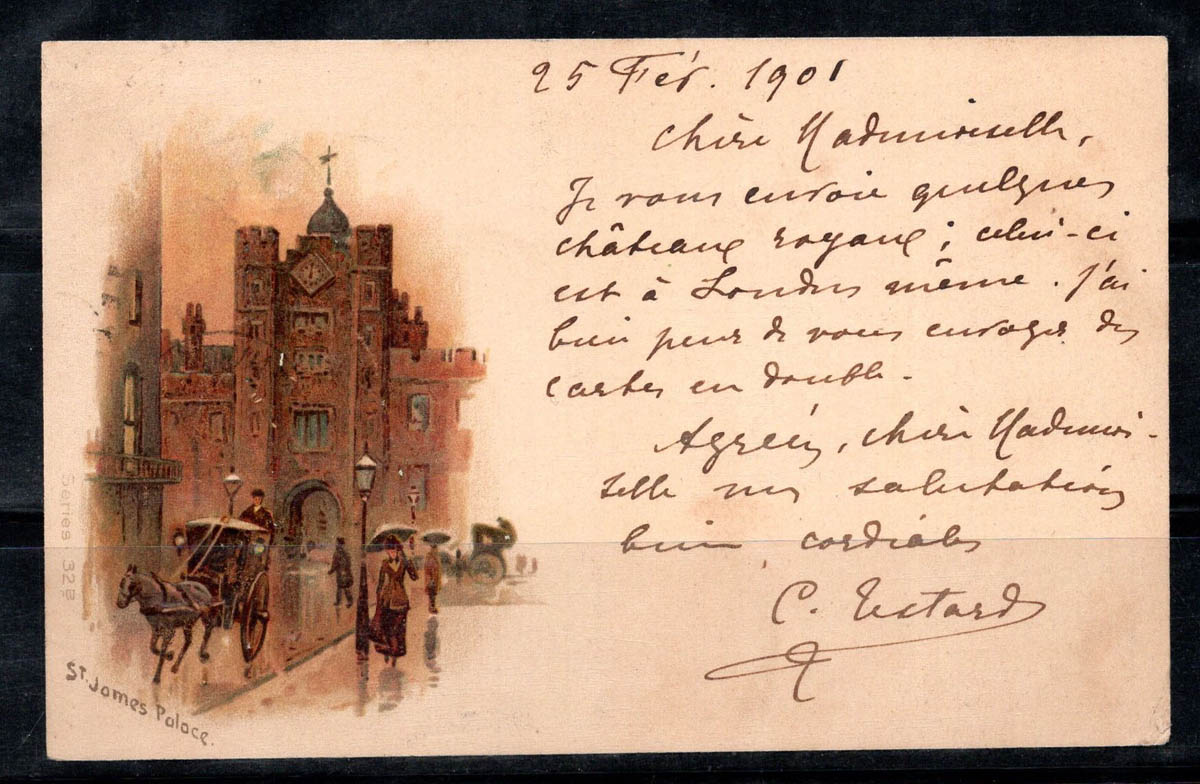 25 Fév. 1901
Chère Mademoiselle,
Je vous envoie quelques
châteaux royaux ; celui-ci
est à Londres même. J'ai
bien peur de vous envoyer des
cartes en double.
Agréez, chère Mademoi-
selle mes salutations
bien cordiales
C. Testard
Series 32
St. James Palace.